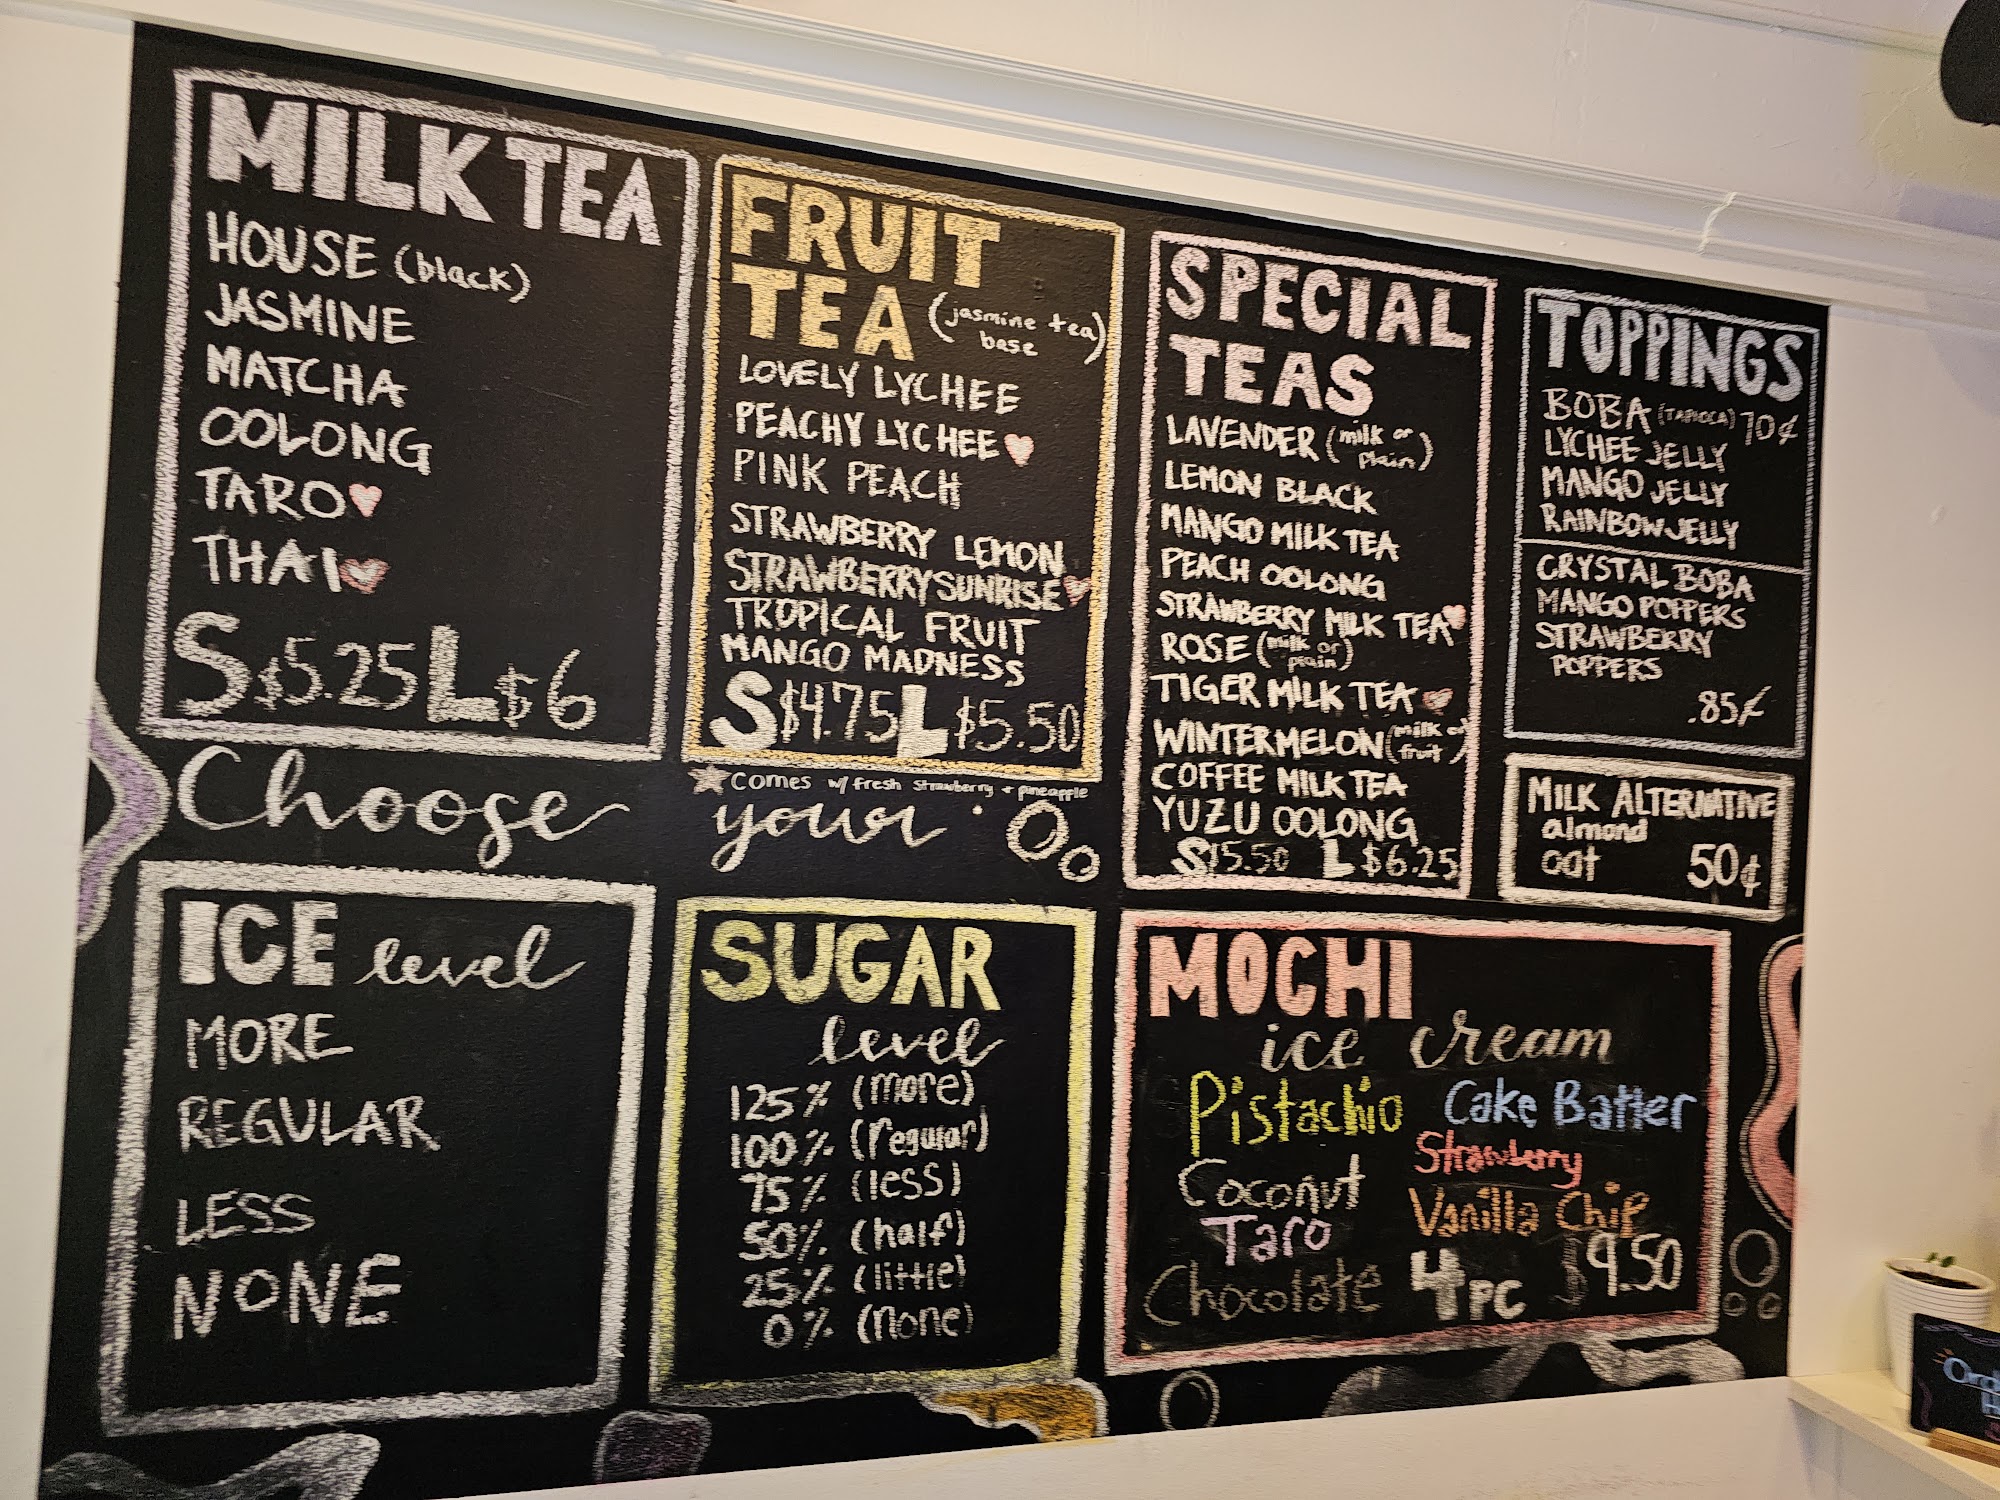 MILK TEA
HOUSE (black)
JASMINE
MATCHA
OOLONG
TARO
THAI
S $5.25 L $6
FRUIT
TEA (jasmine tea
base)
LOVELY LYCHEE
PEACHY LYCHEE
PINK PEACH
STRAWBERRY LEMON
STRAWBERRY SUNRISE
TROPICAL FRUIT
MANGO MADNESS
S $4.75 L $5.50
COMES w/ fresh strawberry + pineapple
SPECIAL
TEAS
LAVENDER (milk or
plain)
LEMON BLACK
MANGO MILK TEA
PEACH OOLONG
STRAWBERRY MILK TEA
ROSE (milk or
plain)
TIGER MILK TEA
WINTERMELON (milk or
fruit)
COFFEE MILK TEA
YUZU OOLONG
S $5.50 L $6.25
TOPPINGS
BOBA (TAPIOCA) 70¢
LYCHEE JELLY
MANGO JELLY
RAINBOW JELLY
CRYSTAL BOBA
MANGO POPPERS
STRAWBERRY
POPPERS
.85¢
MILK ALTERNATIVE
almond
oat 50¢
Choose your
ICE level
MORE
REGULAR
LESS
NONE
SUGAR
level
125% (more)
100% (regular)
75% (less)
50% (half)
25% (little)
0% (none)
MOCHI
ice cream
Pistachio Cake Batter
Strawberry
Coconut Vanilla Chip
Taro
Chocolate 4 PC $9.50